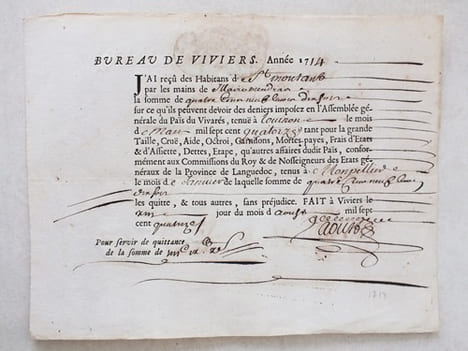 BUREAU DE VIVIERS. Année 1714
J'AI reçu des Habitans de St montant
par les mains de
la somme de quatre cens neuf livres
sur ce qu'ils peuvent devoir des deniers imposez en l'Assemblée géné-
rale du Païs du Vivarés, tenuë à le mois
de May mil sept cent quatorze tant pour la grande
Taille, Cruë, Aide, Octroi, Garnisons, Mortes-payes, Frais d'Etats
& d'Assiette, Dettes, Etape, qu'autres affaires dudit Païs, confor-
mément aux Commissions du Roy & de Nosseigneurs des Etats
généraux de la Province de Languedoc, tenus à Montpellier
le mois de Janvier de laquelle somme de quatre cens neuf livres
les quitte, & tous autres, sans préjudice. FAIT à Viviers le
jour du mois d'aoust mil sept
cent quatorze
Pour servir de quittance
de la somme de
1714